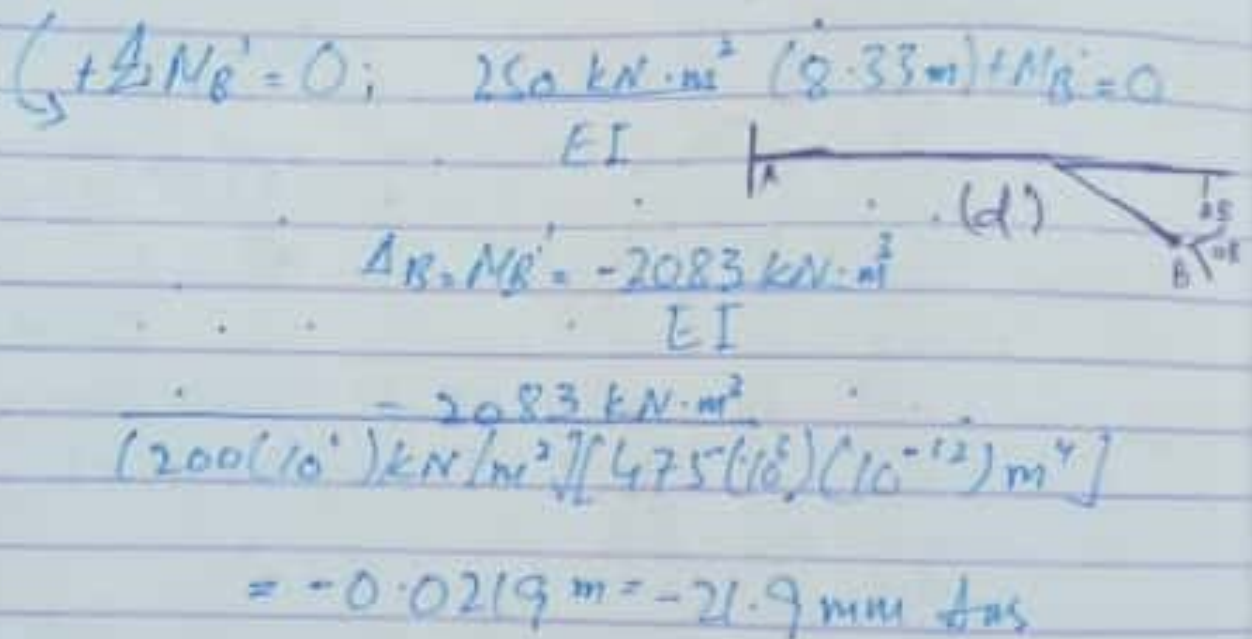 (+ΣM_B' = 0; 250 kN·m² (8.33m) + M_B' = 0
EI
A
(d)
B
Δ_B = M_B' = -2083 kN·m³
EI
-2083 kN·m²
(200(10⁶)kN/m²][475(10⁶)(10⁻¹²)m⁴]
= -0.0219 m = -21.9 mm Ans